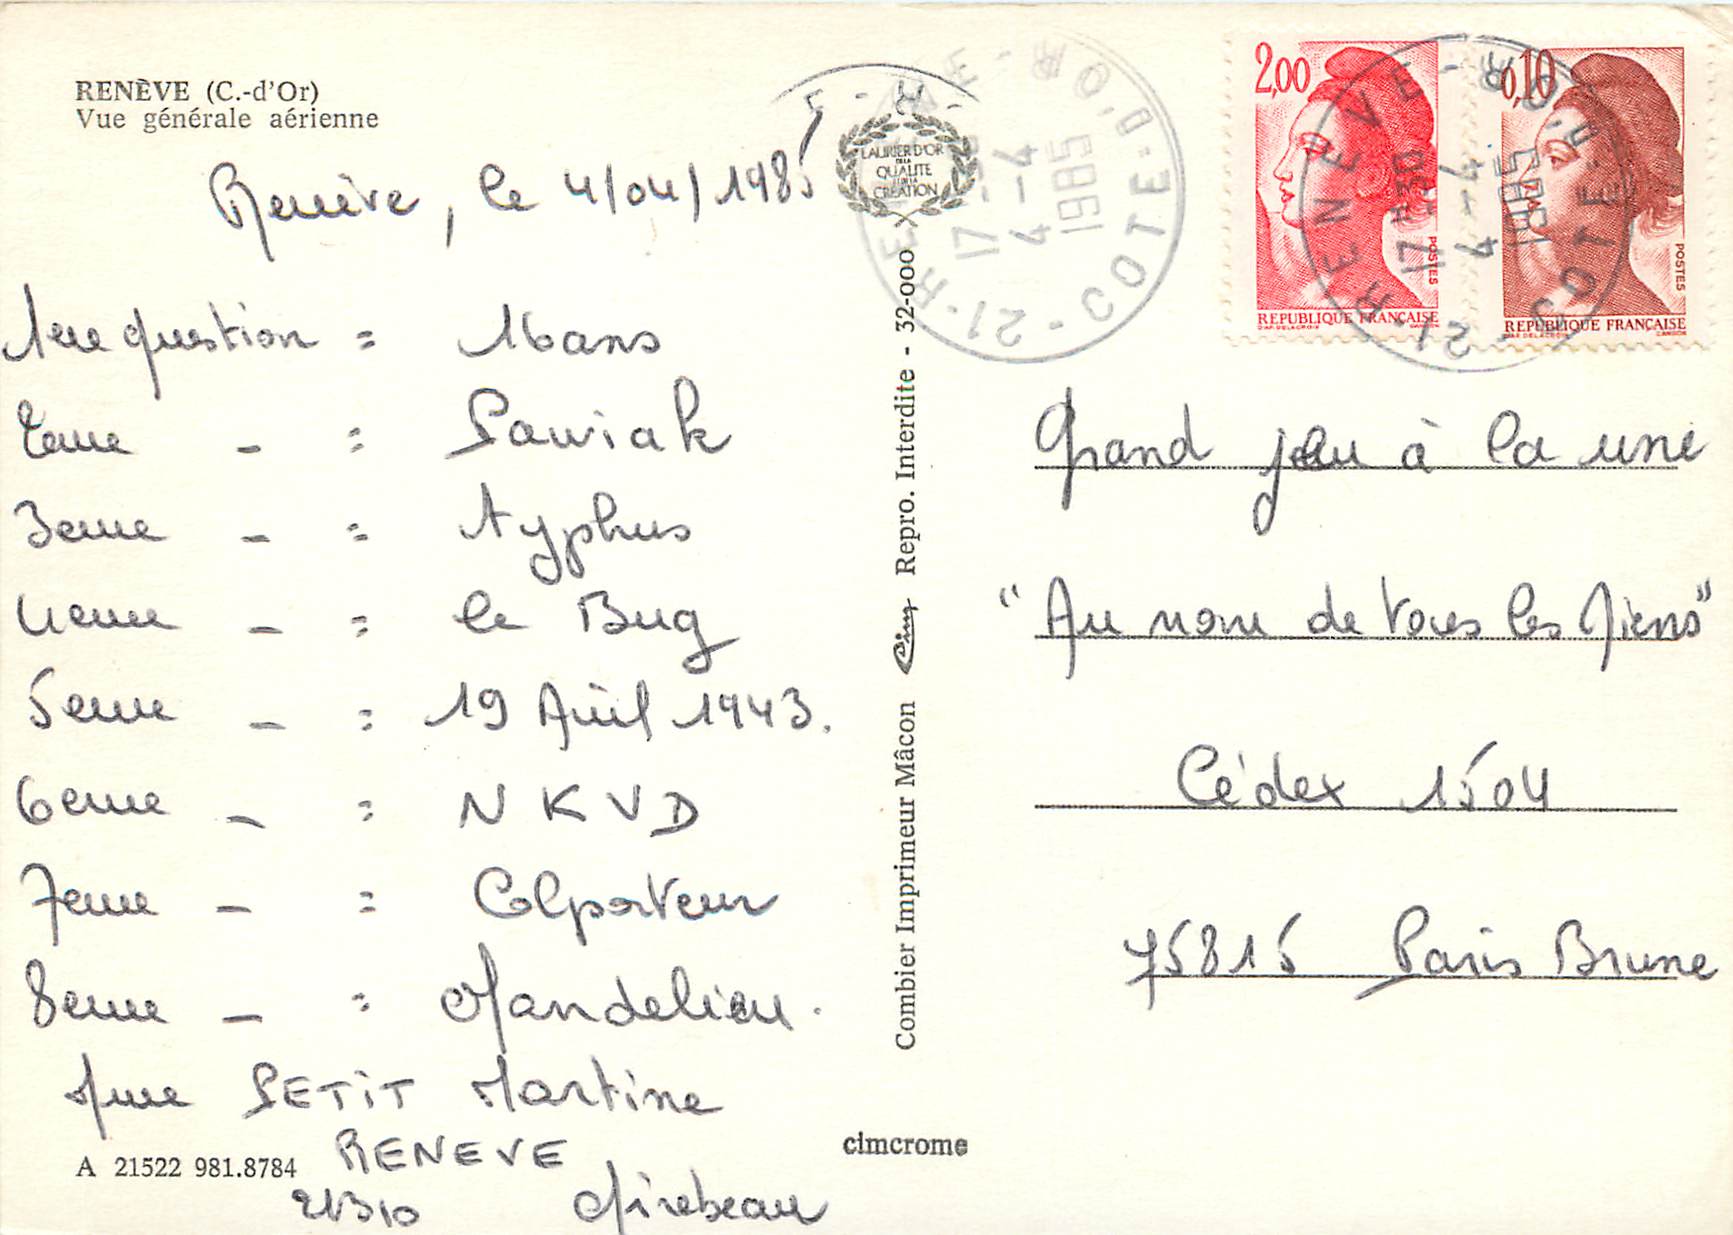 RENÈVE (C.-d'Or)
Vue générale aérienne
Renève, le 4/04/1985
1ere question = 16 ans
2eme - = Pawiak
3eme - = typhus
4eme - = le Bug
5eme - = 19 Avril 1943.
6eme - = NKVD
7eme - = Colporteur
8eme - = Mandelieu.
Mme PETIT Martine
RENEVE
21310 Mirebeau
A 21522 981.8784
cimcrome
Combier Imprimeur Mâcon Cim Repro. Interdite - 32-000
LAURIER D'OR
DE LA
QUALITE
DE LA
CREATION
21-RENEVE
COTE-D'OR
17 30
4-4
1985
2,00
POSTES
REPUBLIQUE FRANÇAISE
D'AP. DELACROIX GANDON
0,10
POSTES
REPUBLIQUE FRANÇAISE
D'AP. DELACROIX GANDON
21-RENEVE
COTE-D'OR
17 H30
4-4
1985
Grand jeu à la une
"Au nom de tous les Miens"
Cédex 1504
75815 Paris Brune